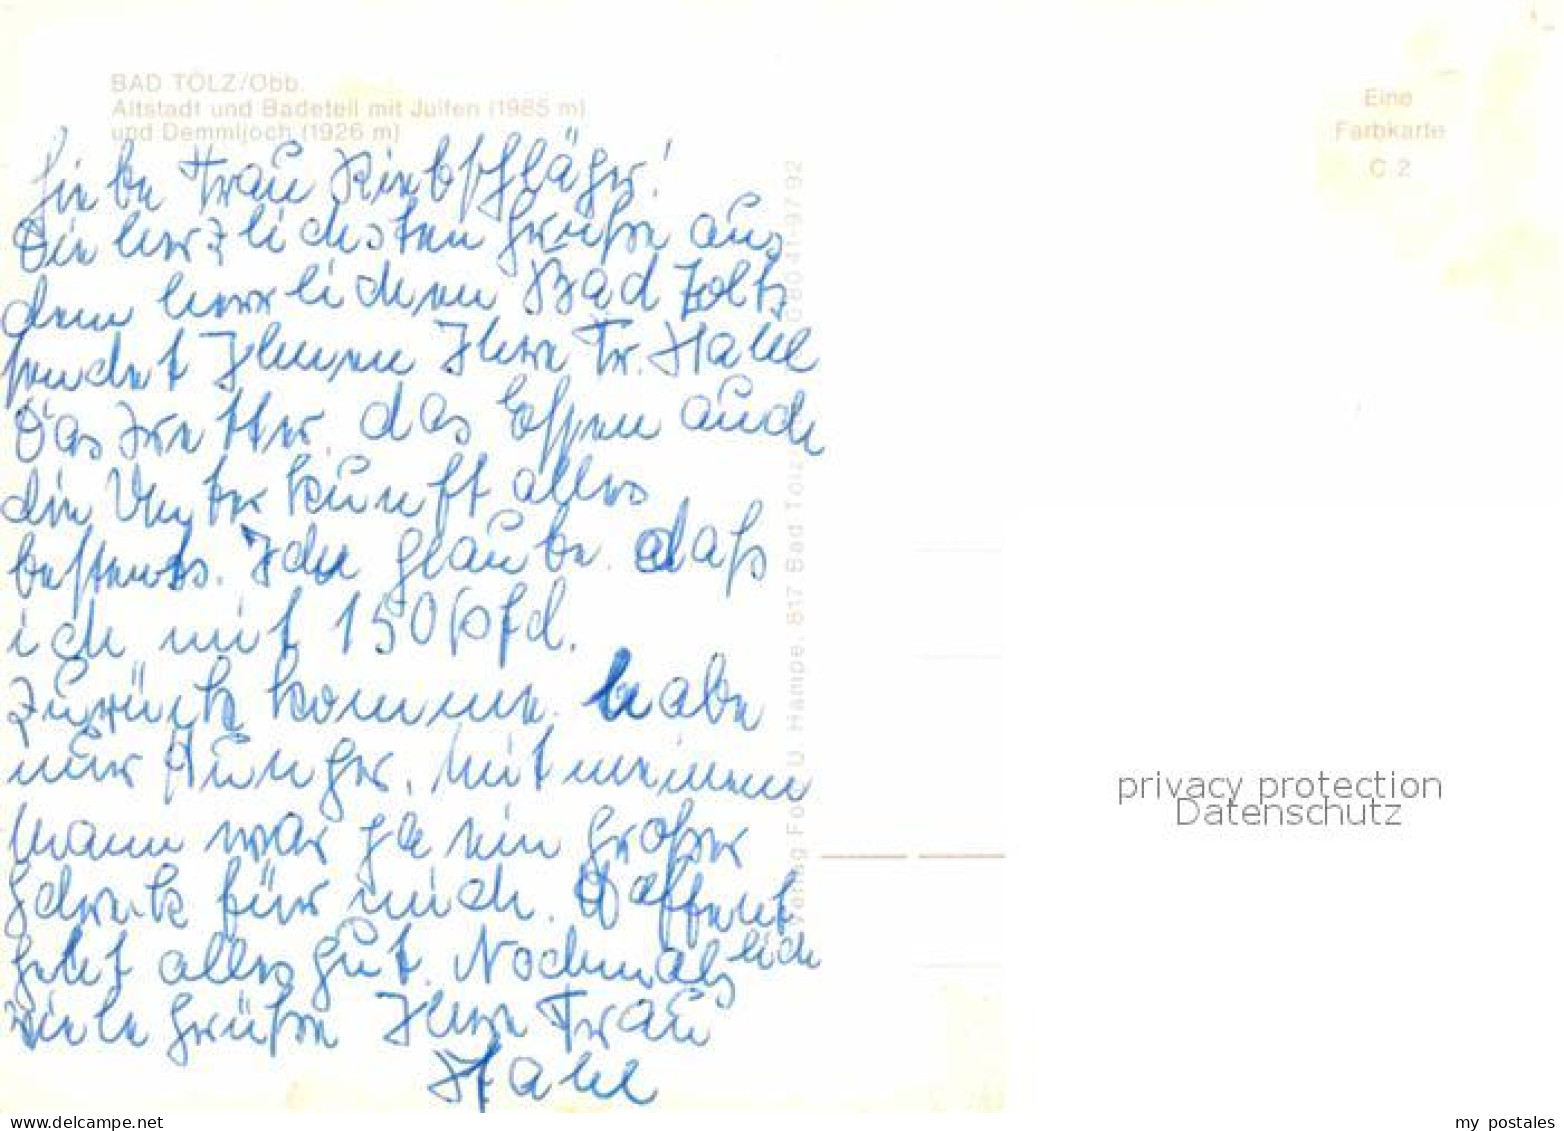 BAD TÖLZ/Obb.
Altstadt und Badeteil mit Juifen (1985 m)
und Demmljoch (1926 m)
Eine
Farbkarte
C 2
Liebe Frau
Die herzlichsten Grüße aus
dem herrlichen Bad Tölz
sendet Ihnen Ihre Fr. Hahl
Das Wetter, das Essen auch
die Unterkunft alles
bestens. Ich glaube, daß
ich mit 150 Pfd.
zurück komme. habe
nur Hunger. Mit meinem
Mann war ja ein großer
Schreck für mich. Hoffent
lich
geht alles gut. Nochmals
viele Grüße Ihre Frau
Hahl
Verlag Foto U. Hampe, 817 Bad Tölz
privacy protection
Datenschutz
www.delcampe.net
my_postales